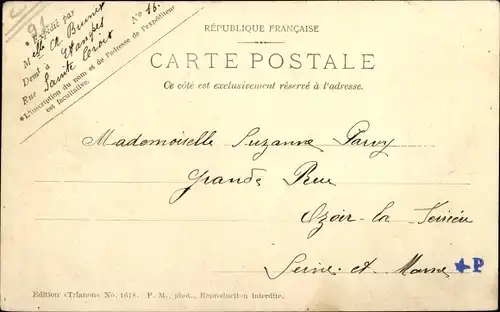 91
* Expédié par
Mlle A. Brunet
Demt à Etampes
Rue Sainte Croix Nº 16.
*L'inscription du nom et de l'adresse de l'expéditeur
est facultative.
RÉPUBLIQUE FRANÇAISE
CARTE POSTALE
Ce côté est exclusivement réservé à l'adresse.
Mademoiselle Suzanne Parvy
Grande Rue
Ozoir-la-Ferrière
Seine-et-Marne
P
Edition «Trianon» No. 1618. P. M., phot., Reproduction interdite.